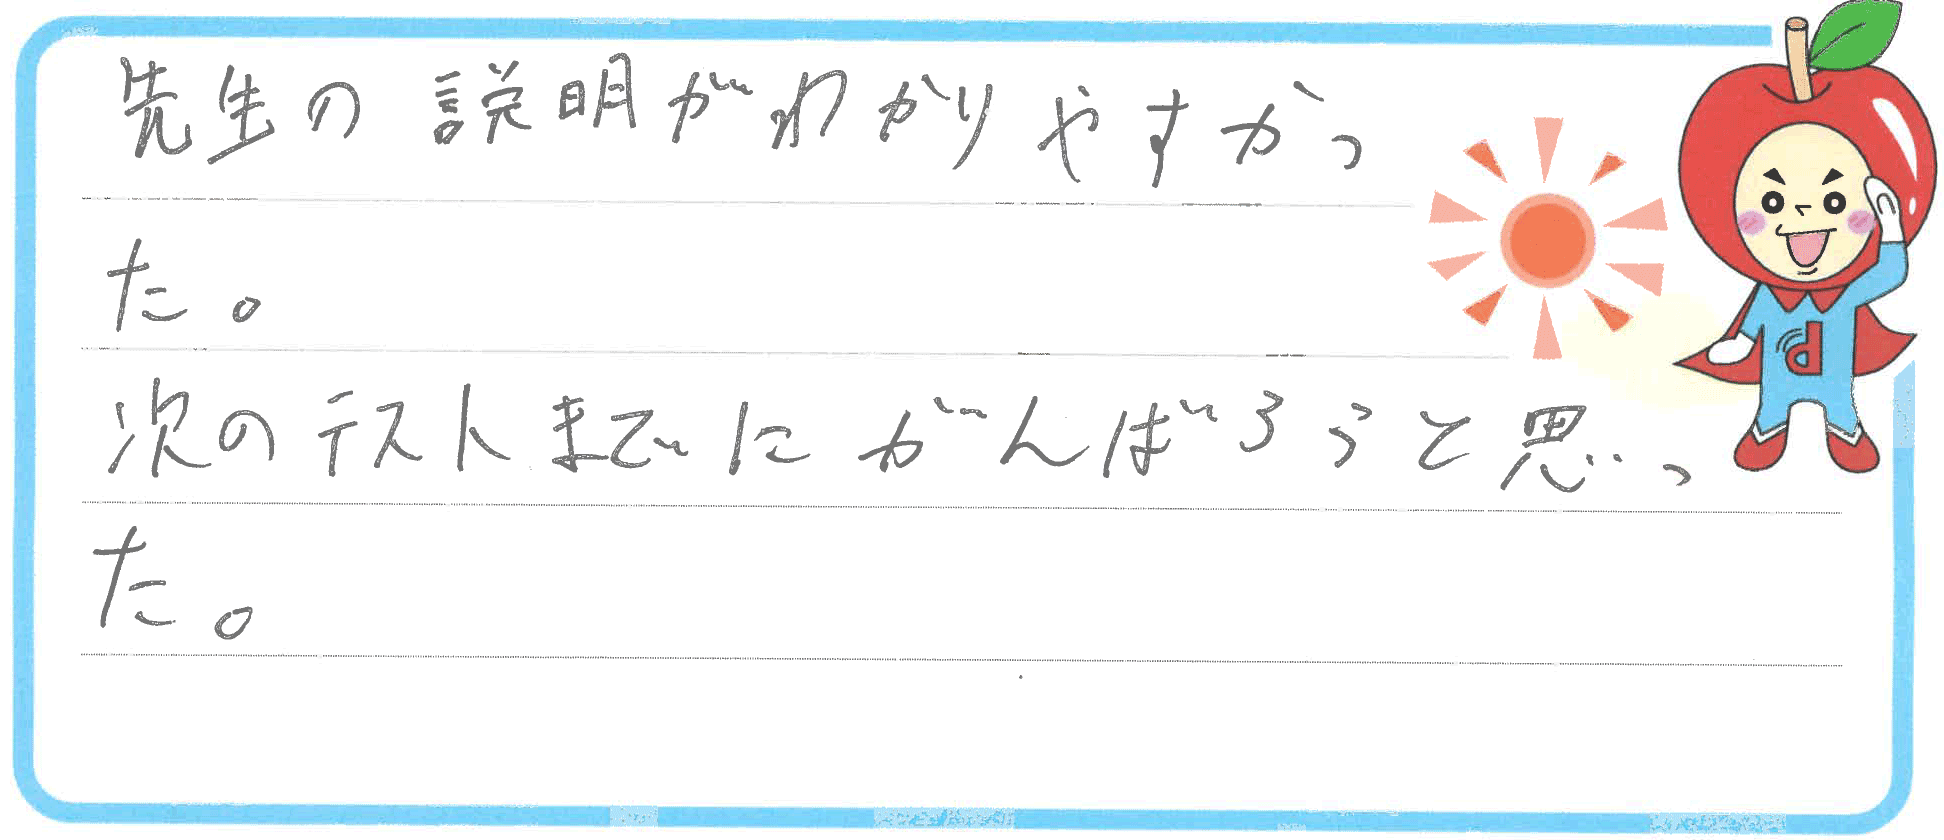 先生の説明がわかりやすかっ
た。
次のテストまでにがんばろうと思っ
た。